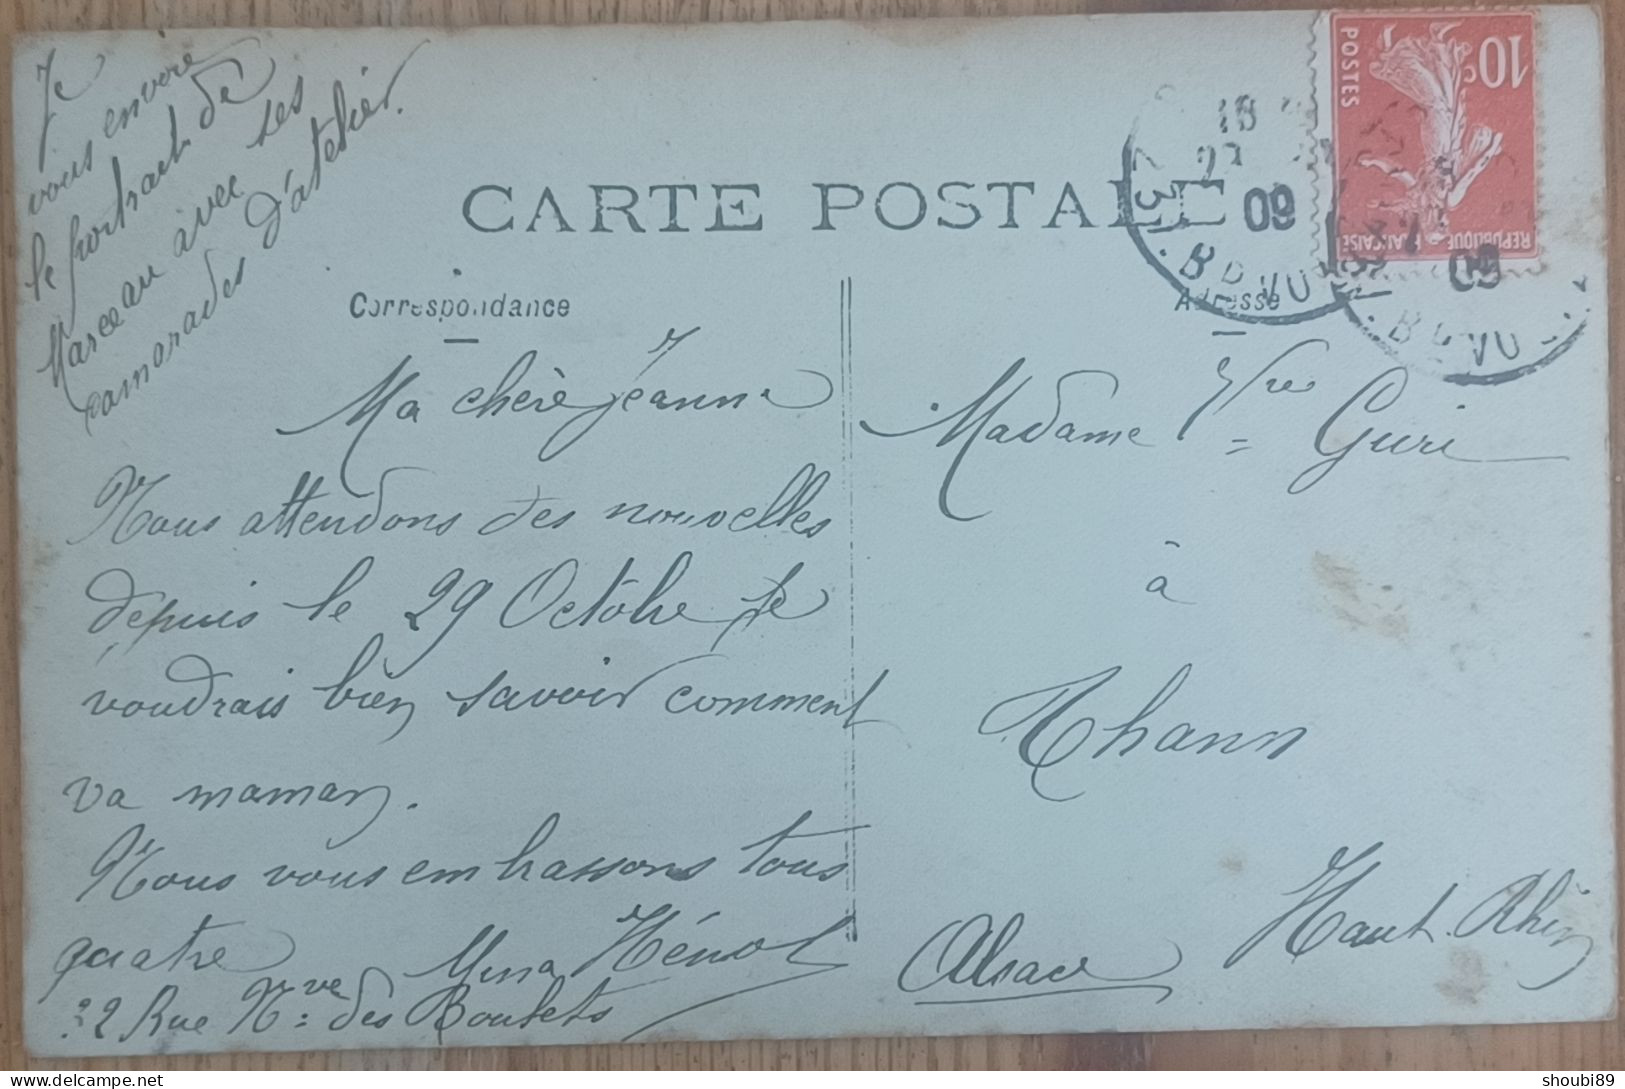 Je
vous envoie
le portrait de
Marceau avec ses
camarades d'atelier.
CARTE POSTALE
Correspondance
Adresse
Ma chère Jeanne
Nous attendons des nouvelles
depuis le 29 Octobre je
voudrais bien savoir comment
va maman.
Nous vous embrassons tous
quatre Mina Hénot
32 Rue Nve des Boulets
Madame Vve Guri
à
Thann
Haut-Rhin
Alsace
10c
POSTES
REPUBLIQUE FRANÇAISE
18
09
BD VO
09
BD VO
shoubi89